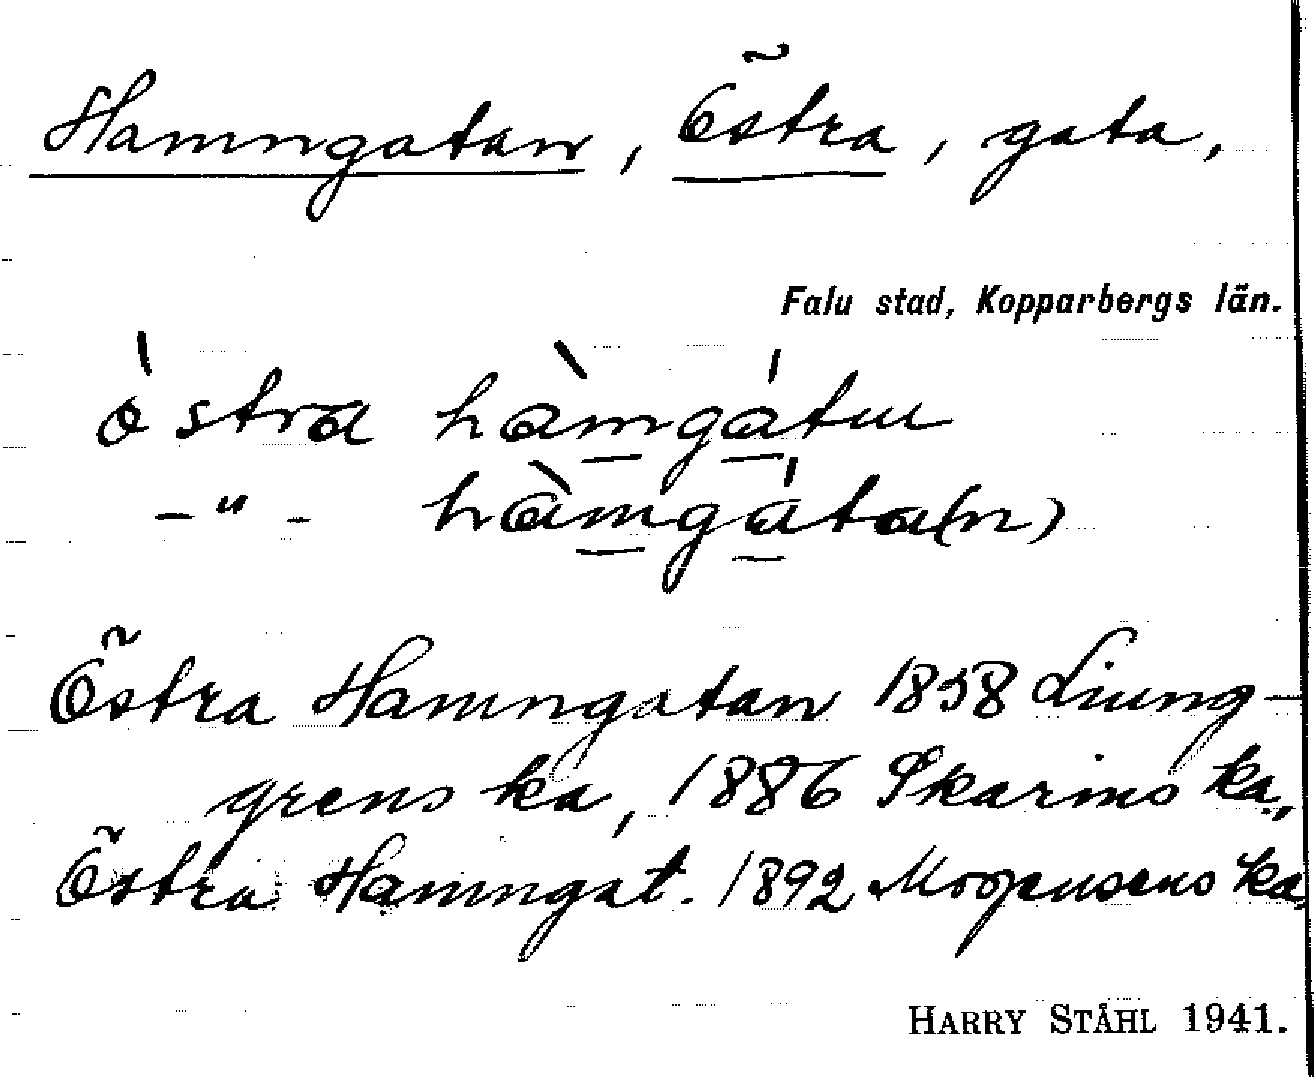 Hamngatan, Östra, gata,
Falu stad, Kopparbergs län.
östra hàmgátun
-"- hàmgáta(n)
Östra Hamngatan 1858 Liung-
grenska, 1886 Skarinska,
Östra Hamngat. 1892 Mogensenska
HARRY STÅHL 1941.